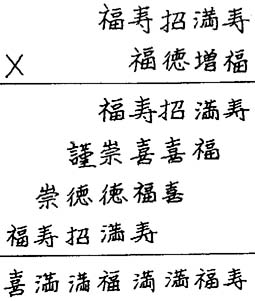 福寿招満寿
× 福徳増福
福寿招満寿
謹崇喜喜福
崇徳徳福喜
福寿招満寿
喜満満福満満福寿